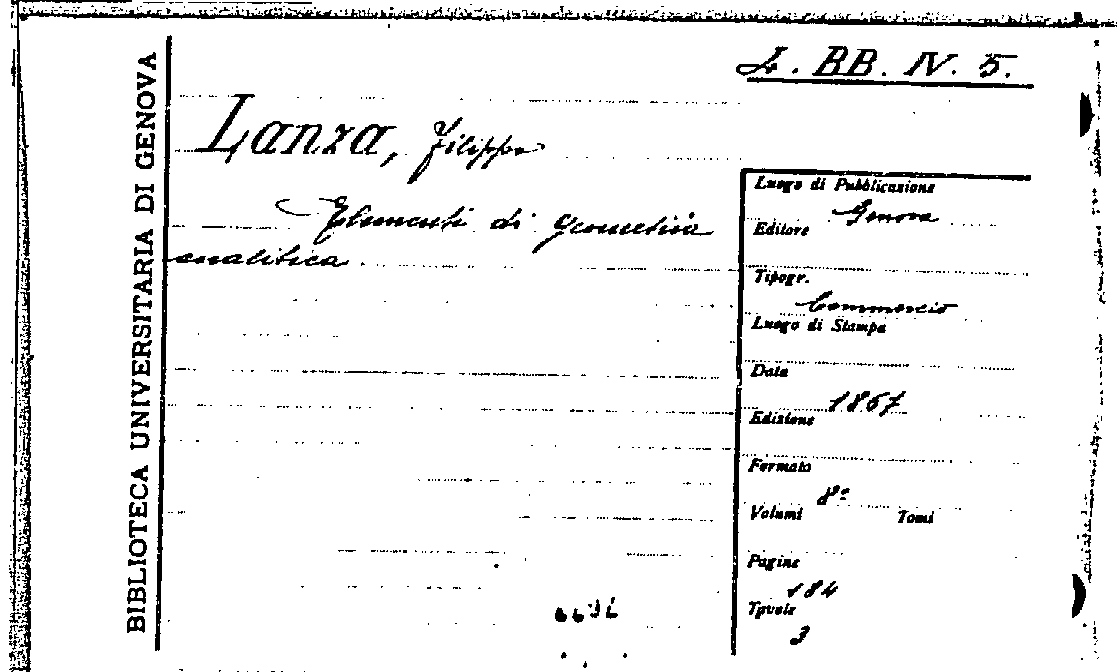 BIBLIOTECA UNIVERSITARIA DI GENOVA
L. BB. IV. 5.
Lanza, Filippo
Elementi di geometria
analitica.
Luogo di Pubblicazione
Genova
Editore
Tipogr.
Commercio
Luogo di Stampa
Data
1867
Edizione
Formato
8º
Volumi Tomi
Pagine
184
Tavole
3